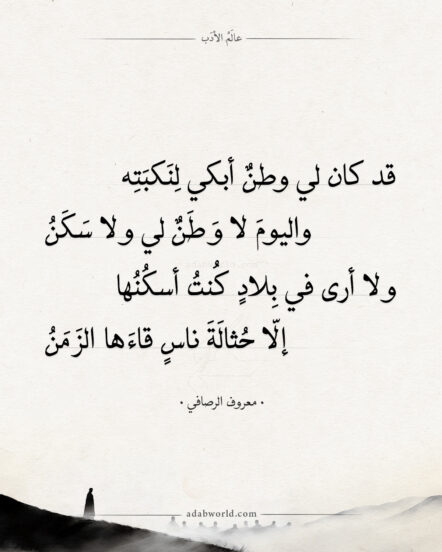 عالَمُ الأدَب
قد كان لي وطنٌ أبكي لِنَكبَتِه
واليومَ لا وَطَنٌ لي ولا سَكَنُ
ولا أرى في بِلادٍ كُنتُ أسكُنُها
إلّا حُثالَةَ ناسٍ قاءَها الزَمَنُ
• معروف الرصافي •
adabworld.com